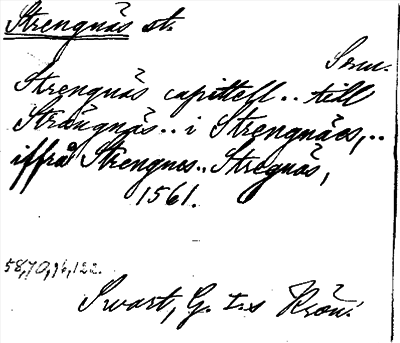 Strengnäs st.
Sm.
Strengnäs capittell .. till
Strängnäs .. i Strengnäes, ..
iffrå Strengnes .. Stregnäs,
1561.
58, 70, 96, 122.
Swart, G. I:s Krön.